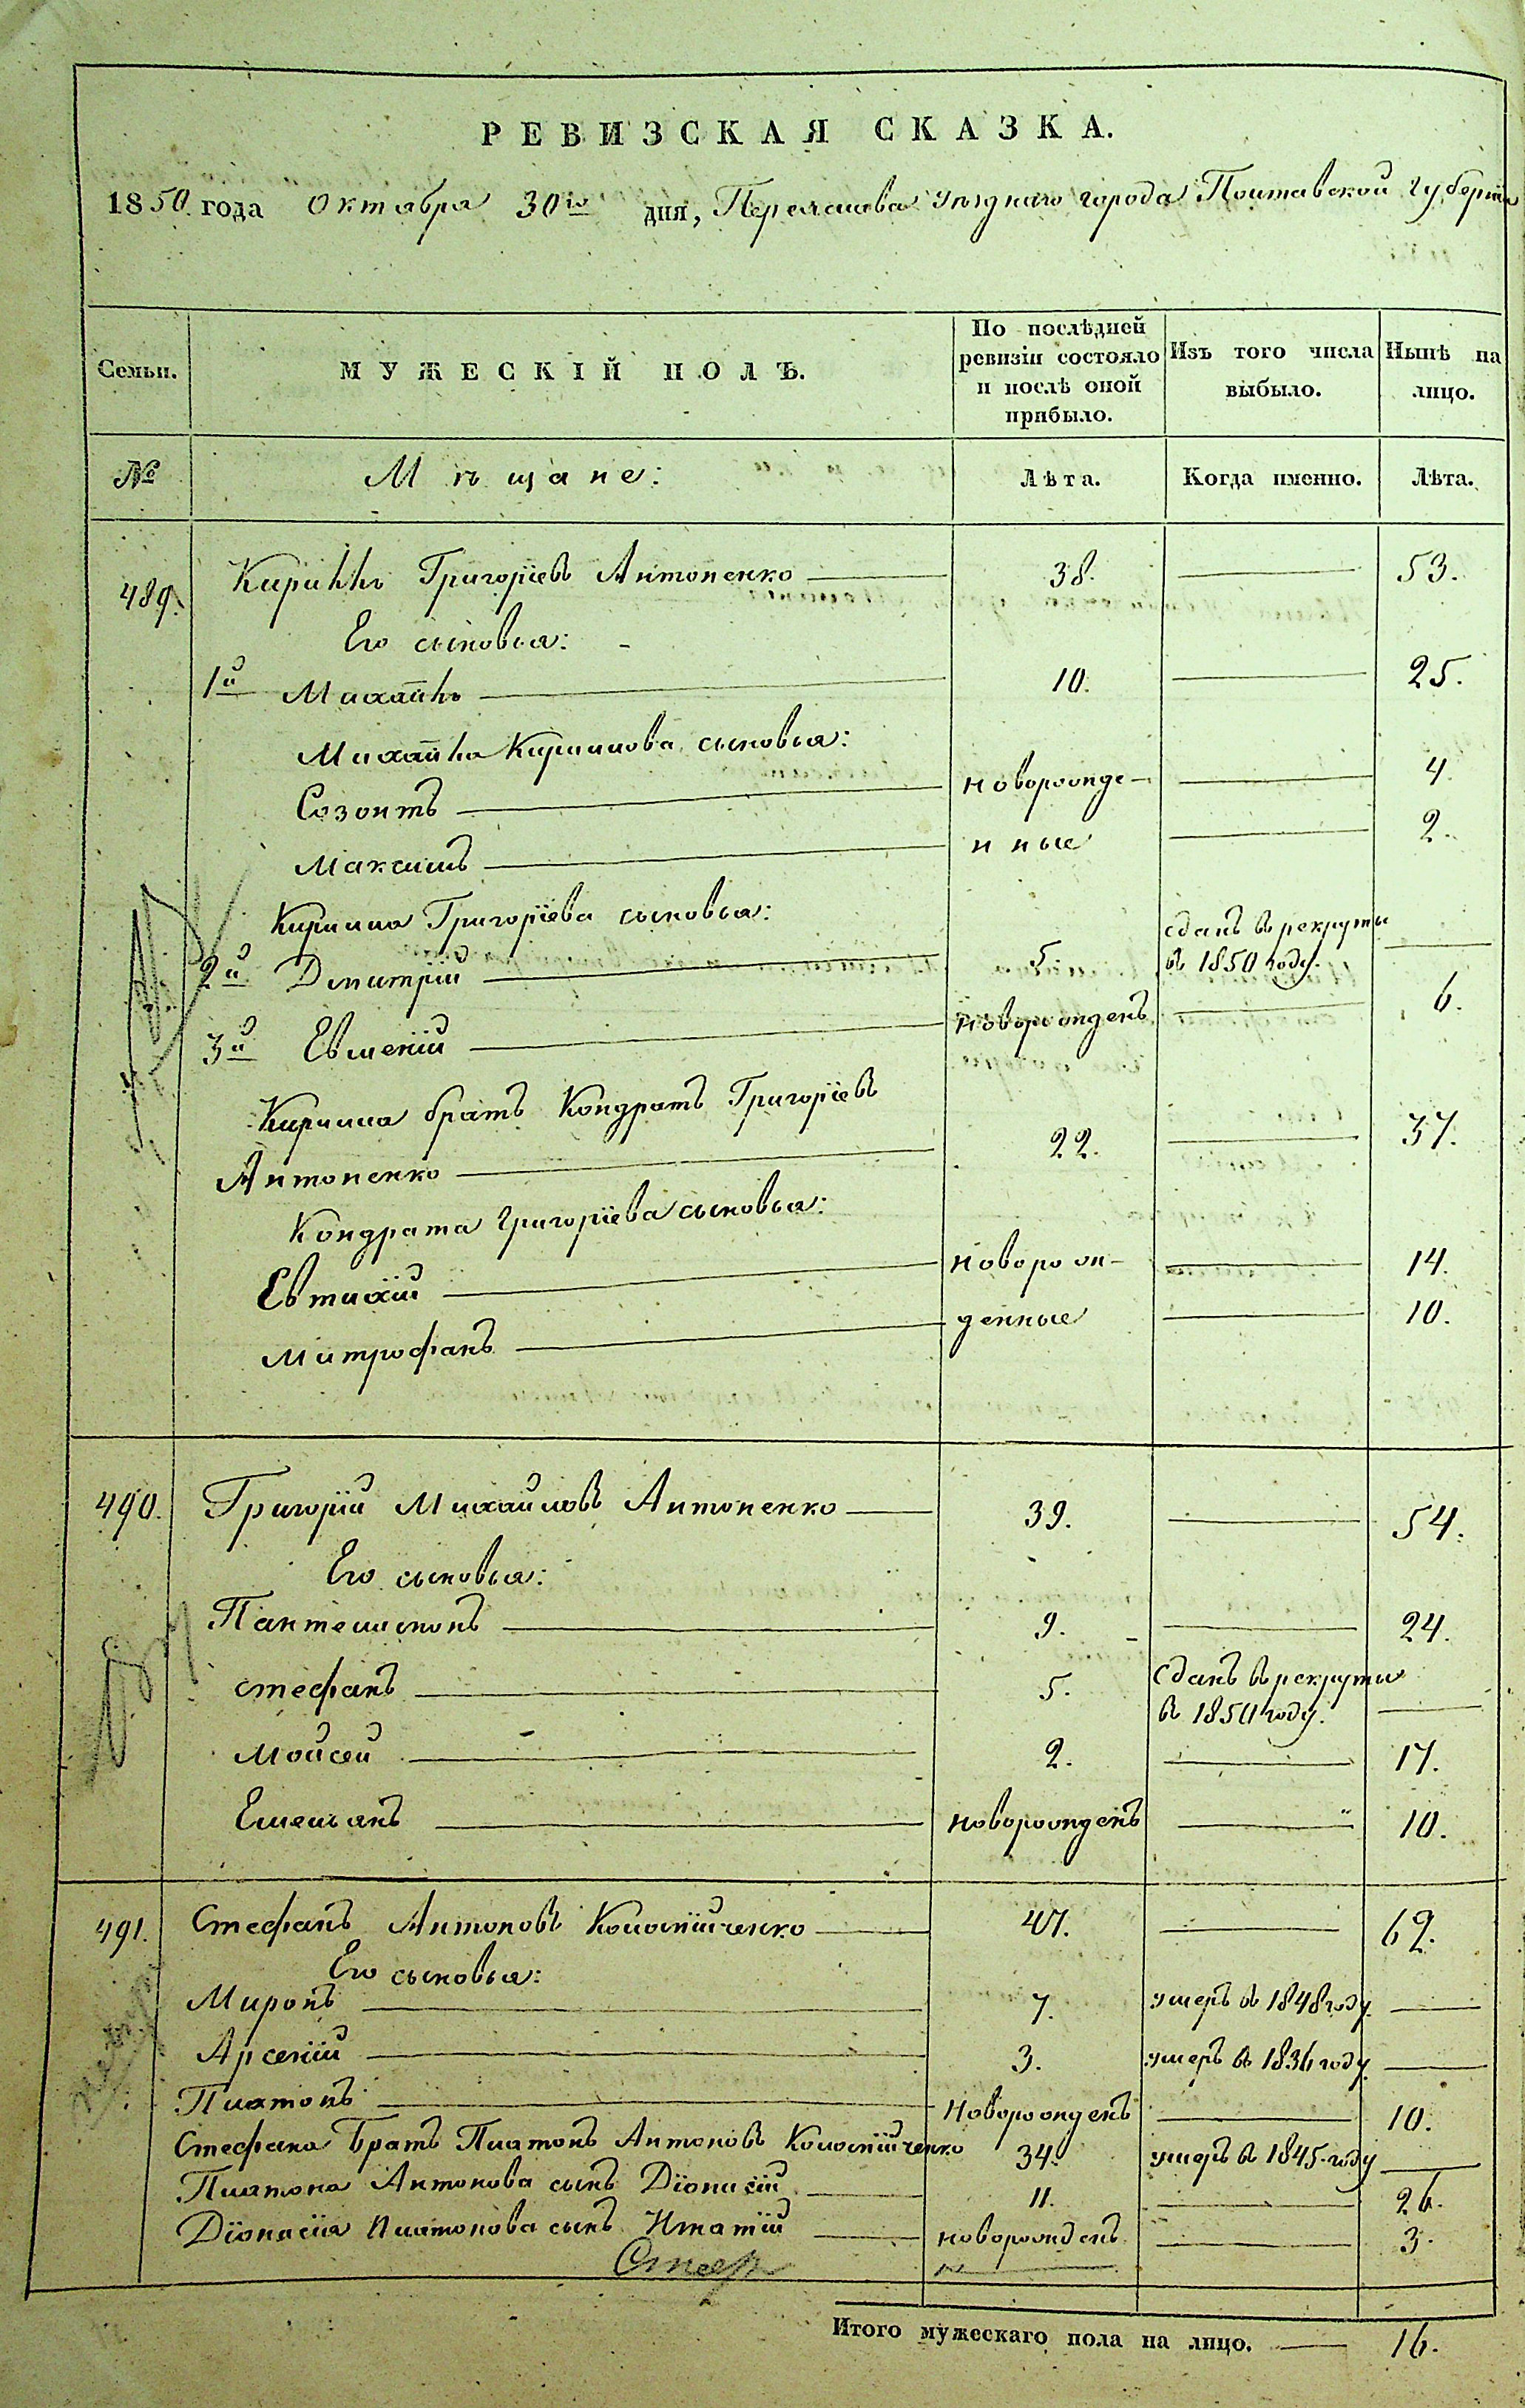 РЕВИЗСКАЯ СКАЗКА.
1850 года Октября 30го дня, Переяслава уѣзднаго города Полтавской губерніи
Семьи. МУЖЕСКІЙ ПОЛЪ. По послѣдней ревизіи состояло и послѣ оной прибыло. Изъ того числа выбыло. Нынѣ на лицо.
№ Мѣщане: Лѣта. Когда именно. Лѣта.
489. Кириллъ Григоріевъ Антоненко 38. 53.
Его сыновья:
1й Михайлъ 10. 25.
Михайла Кириллова сыновья:
Созонтъ новорожде- 4.
Максимъ нные 2.
Кирилла Григоріева сыновья:
2й Дмитрій 5. сданъ въ рекруты въ 1850 году.
3й Евменій новорожденъ 6.
Кирилла братъ Кондратъ Григоріевъ
Антоненко 22. 37.
Кондрата Григоріева сыновья:
Евтихій новорож- 14.
Митрофанъ денные 10.
490. Григорій Михайловъ Антоненко 39. 54.
Его сыновья:
Пантелимонъ 9. 24.
Стефанъ 5. Сданъ въ рекруты въ 1850 году.
Мойсей 2. 17.
Емельянъ новорожденъ 10.
491. Стефанъ Антоновъ Коломійченко 47. 62.
Его сыновья:
Миронъ 7. умеръ въ 1848 году
Арсеній 3. умеръ въ 1836 году
Платонъ Новорожденъ 10.
Стефана братъ Платонъ Антоновъ Коломійченко 34. умеръ въ 1845 году
Платона Антонова сынъ Діонисій 11. 26.
Діонисія Платонова сынъ Игнатій новорожденъ 3.
Итого мужескаго пола на лицо. 16.